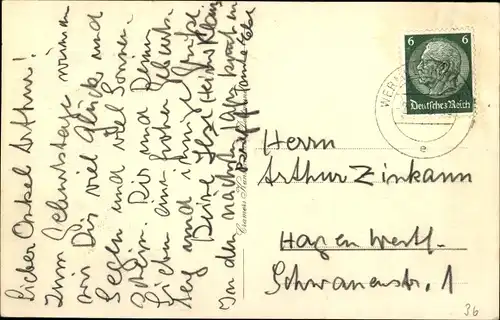 Lieber Onkel Arthur!
Zum Geburtstage wünschen
wir Dir viel Glück und
Segen und viel Sonnen-
schein. Dir und Deinen
Lieben einen frohen Geburts-
tag und innige Grüße
Deine
In den nächsten
6 6
Deutsches Reich
WER
e
Herrn
Arthur Zinkann
Hagen Westf.
Schwanenstr. 1
Cramers
36